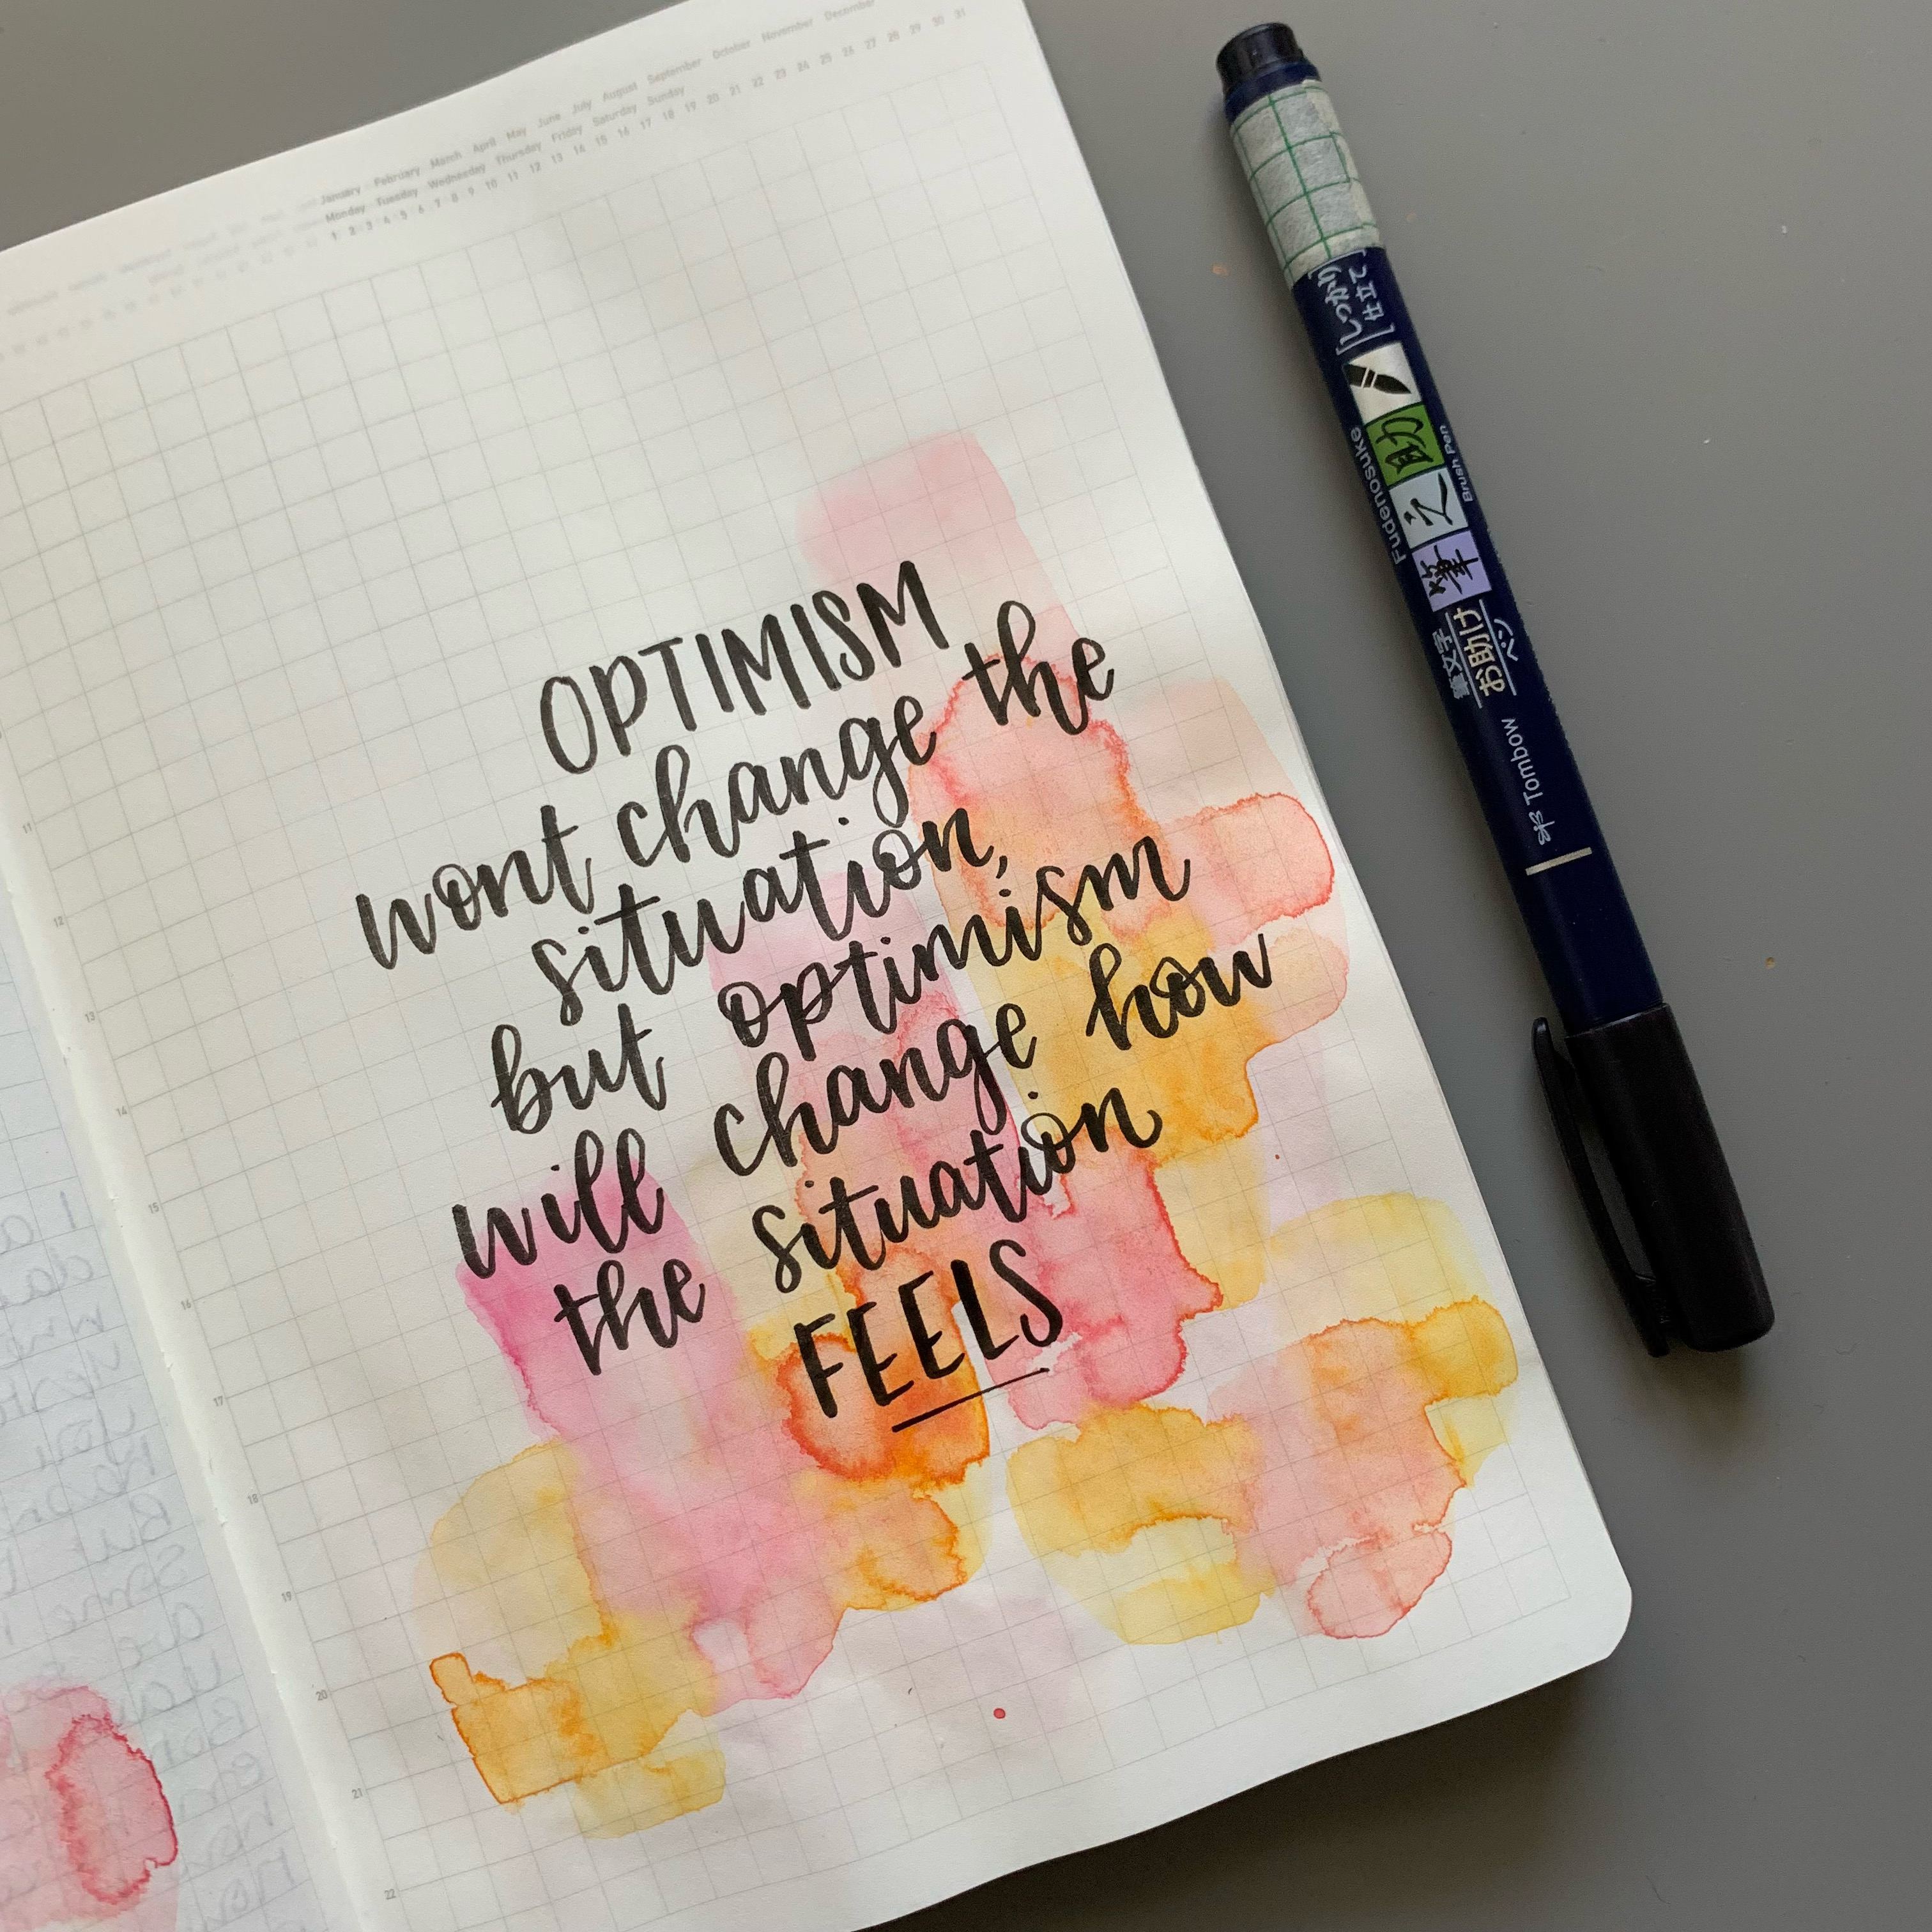 January February March April May June July August September October November December
Monday Tuesday Wednesday Thursday Friday Saturday Sunday
1 2 3 4 5 6 7 8 9 10 11 12 13 14 15 16 17 18 19 20 21 22 23 24 25 26 27 28 29 30 31
OPTIMISM
wont change the
situation,
but optimism
will change how
the situation
FEELS
11
12
13
14
15
16
17
18
19
20
21
22
[しっかり
仕立て]
Fudenosuke
筆之助
Brush Pen
筆文字
お助け
ペン
Tombow